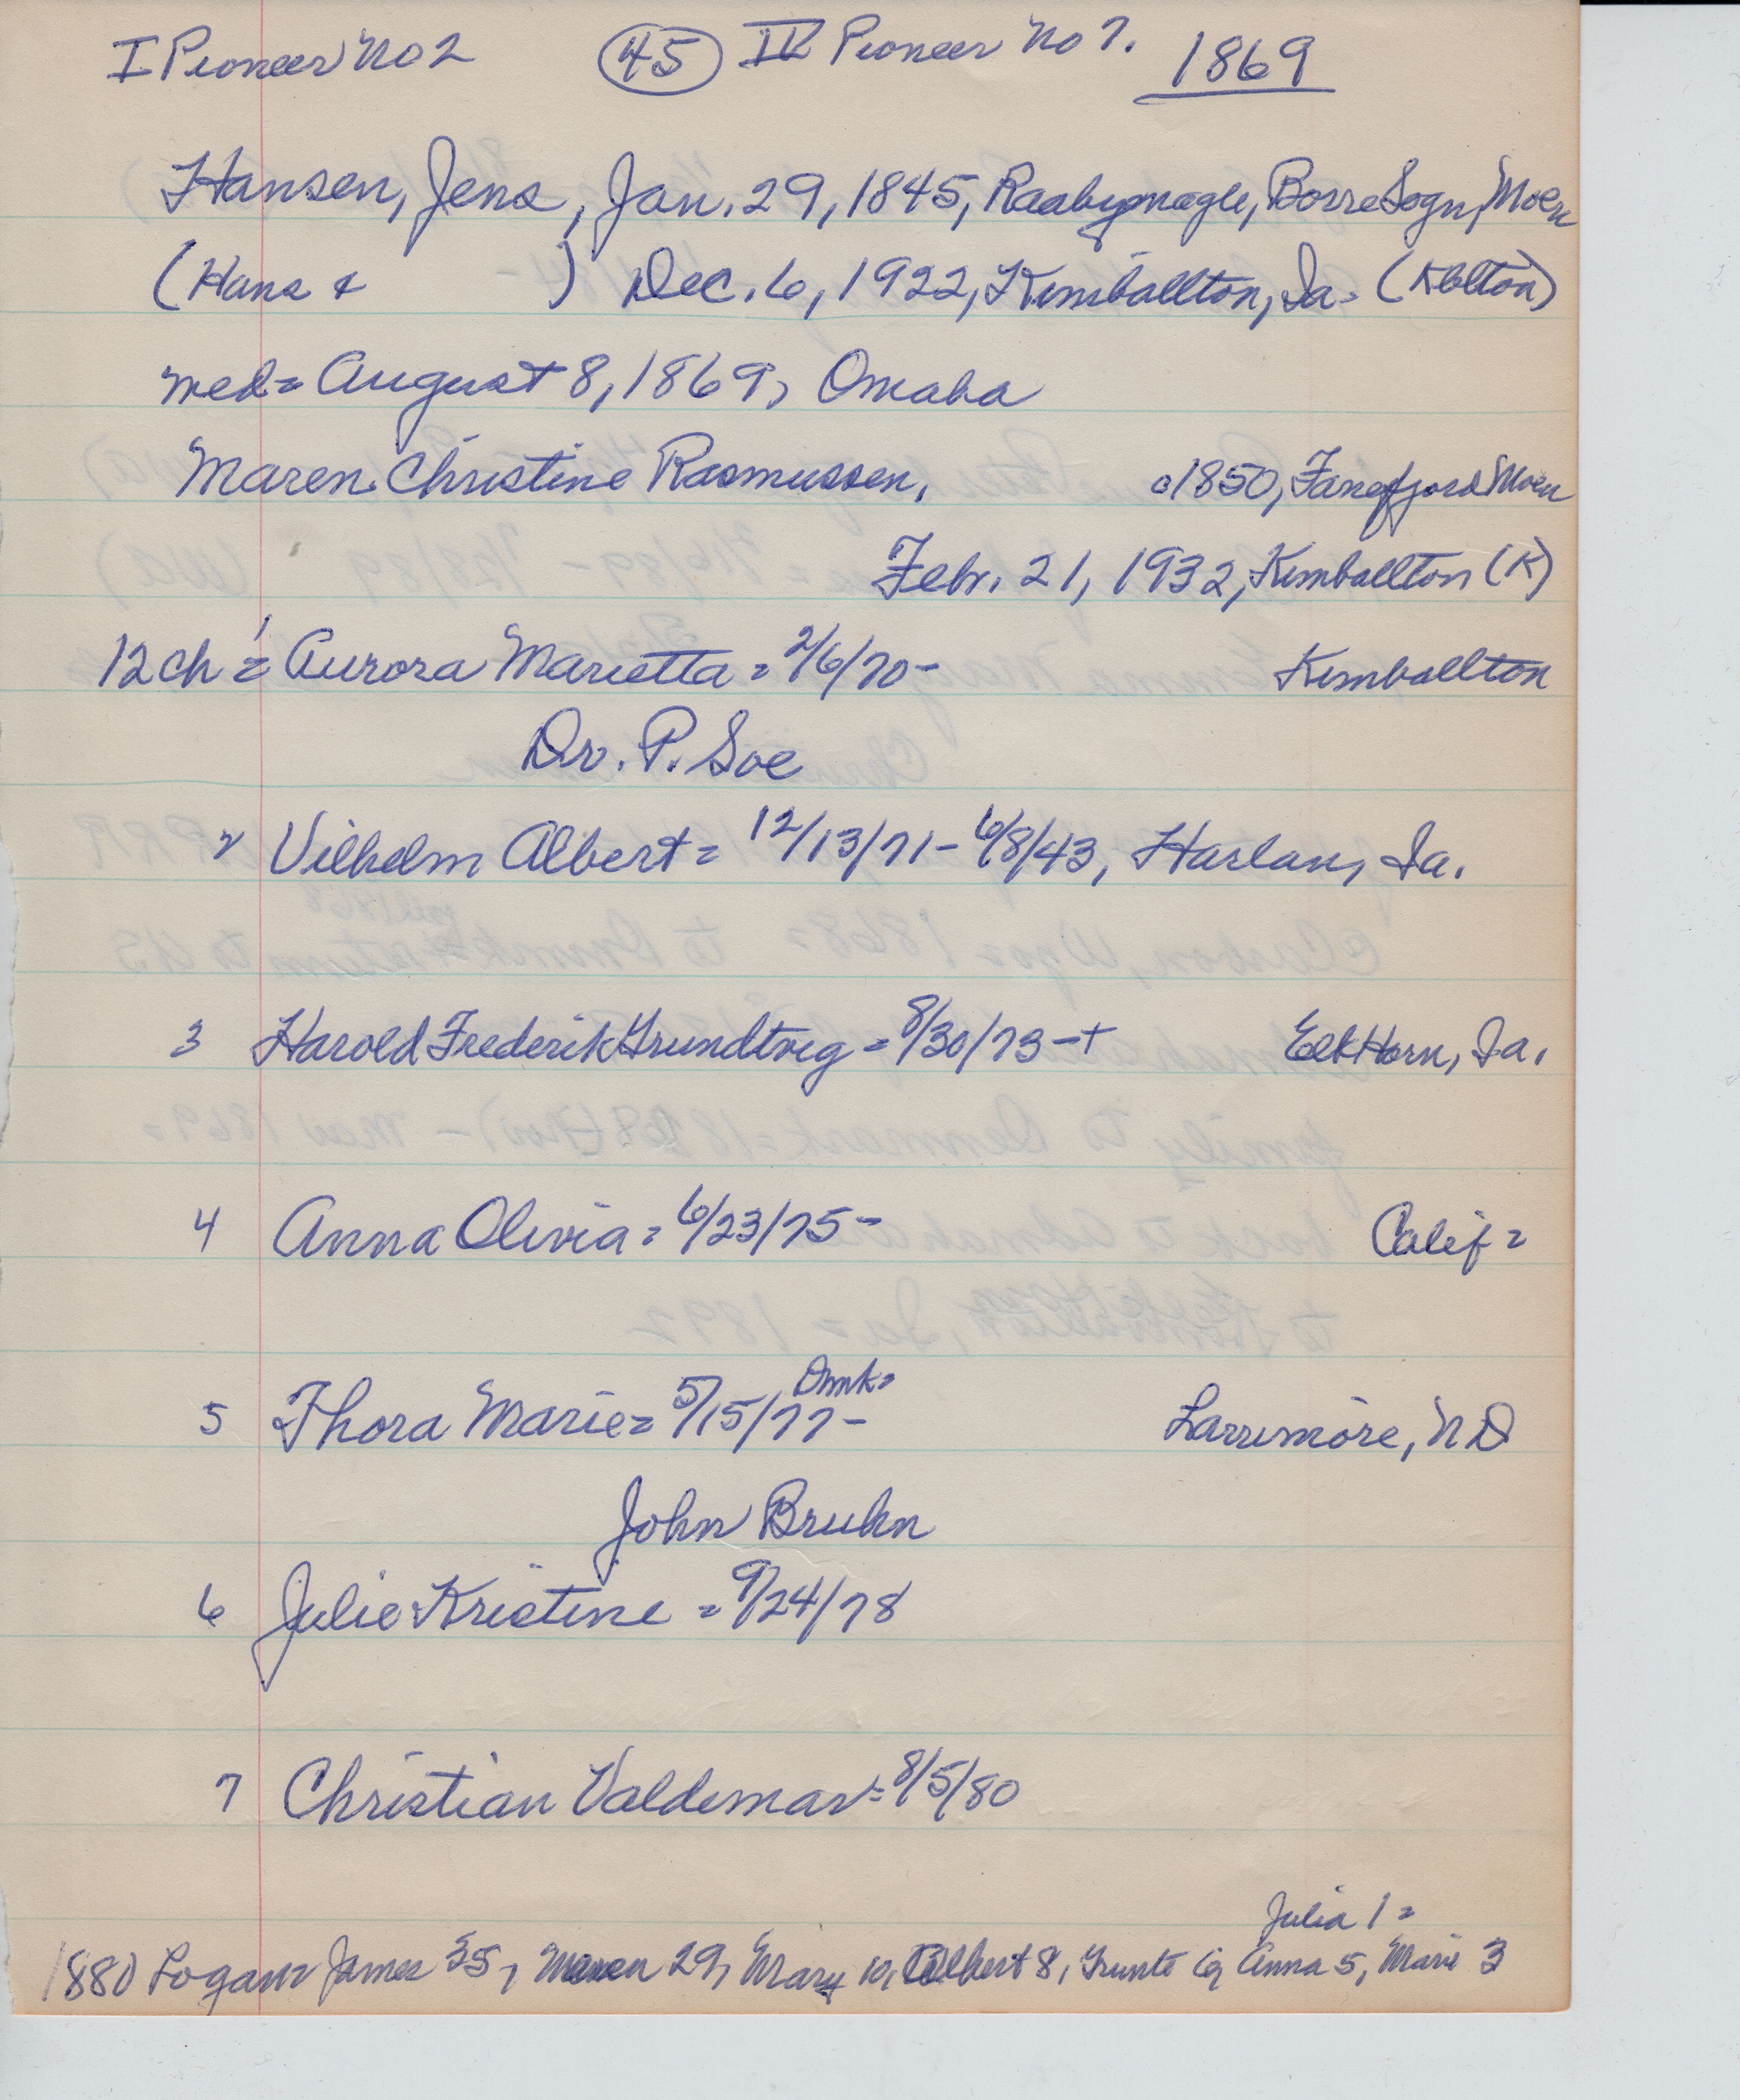 I Pioneer No 2 (45) IV Pioneer No 7. 1869
Hansen, Jens, Jan. 29, 1845, Raabymagle, Borre Sogn, Moen
(Hans & ) Dec. 6, 1922, Kimballton, Ia. (Kblton)
med= August 8, 1869, Omaha
Maren Christine Rasmussen, c1850, Fanefjord Moen
Febr. 21, 1932, Kimballton (K)
12 ch = 1 Aurora Marietta = 2/6/70 - Kimballton
Dr. P. Soe
2 Vilhelm Albert = 12/13/71 - 6/8/43, Harlan, Ia.
3 Harold Frederik Grundtvig = 8/30/73 - + Elk Horn, Ia.
4 Anna Olivia = 6/23/75 - Calif =
Dmk=
5 Thora Marie = 5/15/77 - Larrimore, ND
John Bruhn
6 Julie Kristine = 9/24/78
7 Christian Valdemar = 8/5/80
Julia 1 =
1880 Logan= James 35, Maren 29, Mary 10, Albert 8, Grunte 6, Anna 5, Marie 3